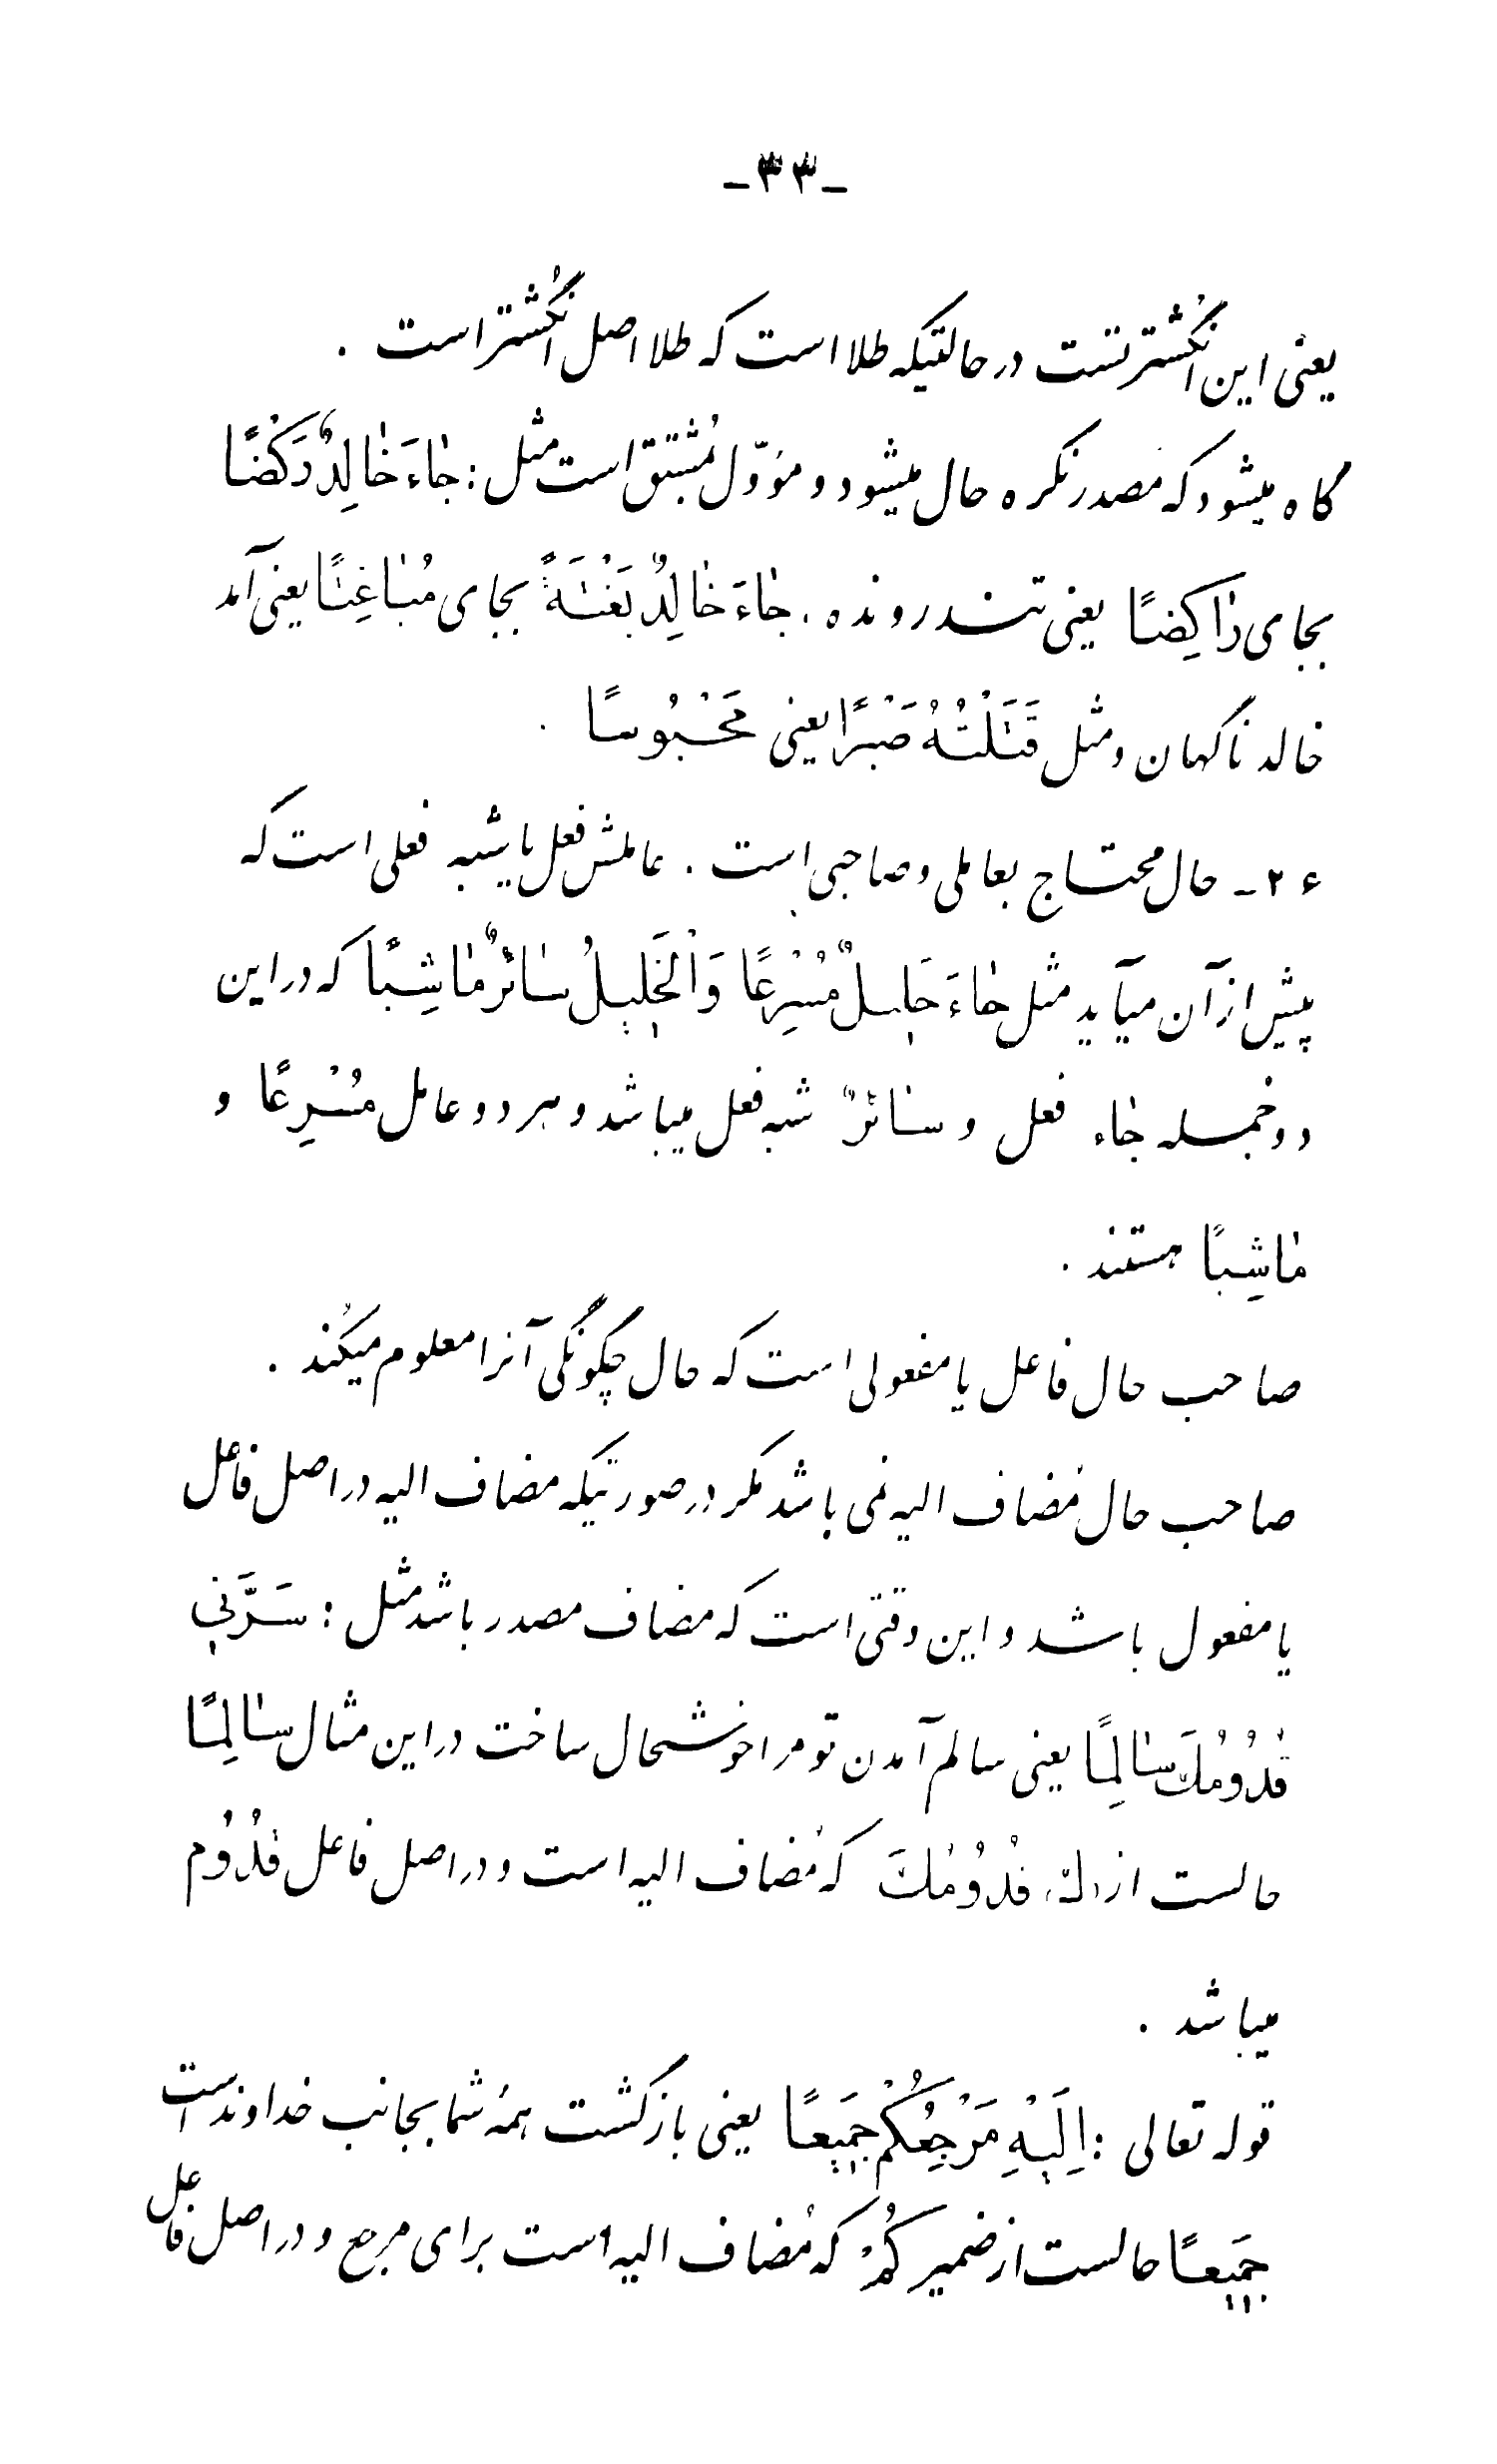 -۳۳-
یعنی این انگشتر تست در حالتیکه طلا است که طلا اصل انگشتر است .
گاه میشود که مصدر نکره حال میشود و مؤوّل بمُشتقّ است مثل : جٰاءَ خٰالِدٌ رَکْضًا
بجای رٰاکِضًا یعنی تند رونده . جٰاءَ خٰالِدٌ بَغْتَةً بجای مُبٰاغِتًا یعنی آمد
خالد ناگهان و مثل قَتَلْتُهُ صَبْرًا یعنی مَحْبُوسًا .
۲۶- حال محتاج بعاملی و صاحبی است . عاملش فعل یا شبه فعلی است که
پیش از آن میآید مثل جٰاءَ جَلیلٌ مُسْرِعًا وَ الْخَلیلُ سٰائرٌ مٰاشِیًا که در این
دو جمله جٰاء فعل و سٰائرٌ شبه فعل میباشد و هر دو عامل مُسْرِعًا و
مٰاشِیًا هستند .
صاحب حال فاعل یا مفعولی است که حال چگونگی آنرا معلوم میکند .
صاحب حال مُضاف الیه نمی باشد مگر در صورتیکه مضاف الیه در اصل فاعل
یا مفعول باشد و این وقتی است که مضاف مصدر باشد مثل : سَرَّنی
قُدُوُمُکَ سٰالِمًا یعنی سالم آمدن تو مرا خوشحال ساخت در این مثال سٰالِمًا
حالست از «ک» قُدُوُمُکَ که مُضاف الیه است و در اصل فاعل قُدُوُم
میباشد .
قوله تعالی : اِلَیْهِ مَرْجِعُکُمْ جَمیعًا یعنی بازگشت همهٔ شما بجانب خداوند است
جَمیعًا حالست از ضمیر کُمْ که مُضاف الیه است برای مرجع و در اصل فاعل